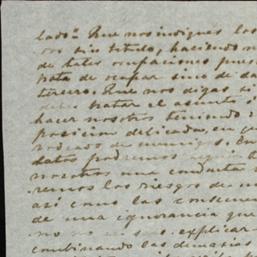 lado= Que nos indiques los
 sin titulo, haciendo
de tales ocupaciones pues
trata de ocupar sino de da
tercero. Que nos digas si
 tratar el asunto
hacer nosotros teniendo
posicion delicada, en que
rodeado de enemigos. En
datos podremos
nosotros una conducta
remos los riesgos de
así como las consecuen
de una ignorancia que
no explicar
combinando las demasias